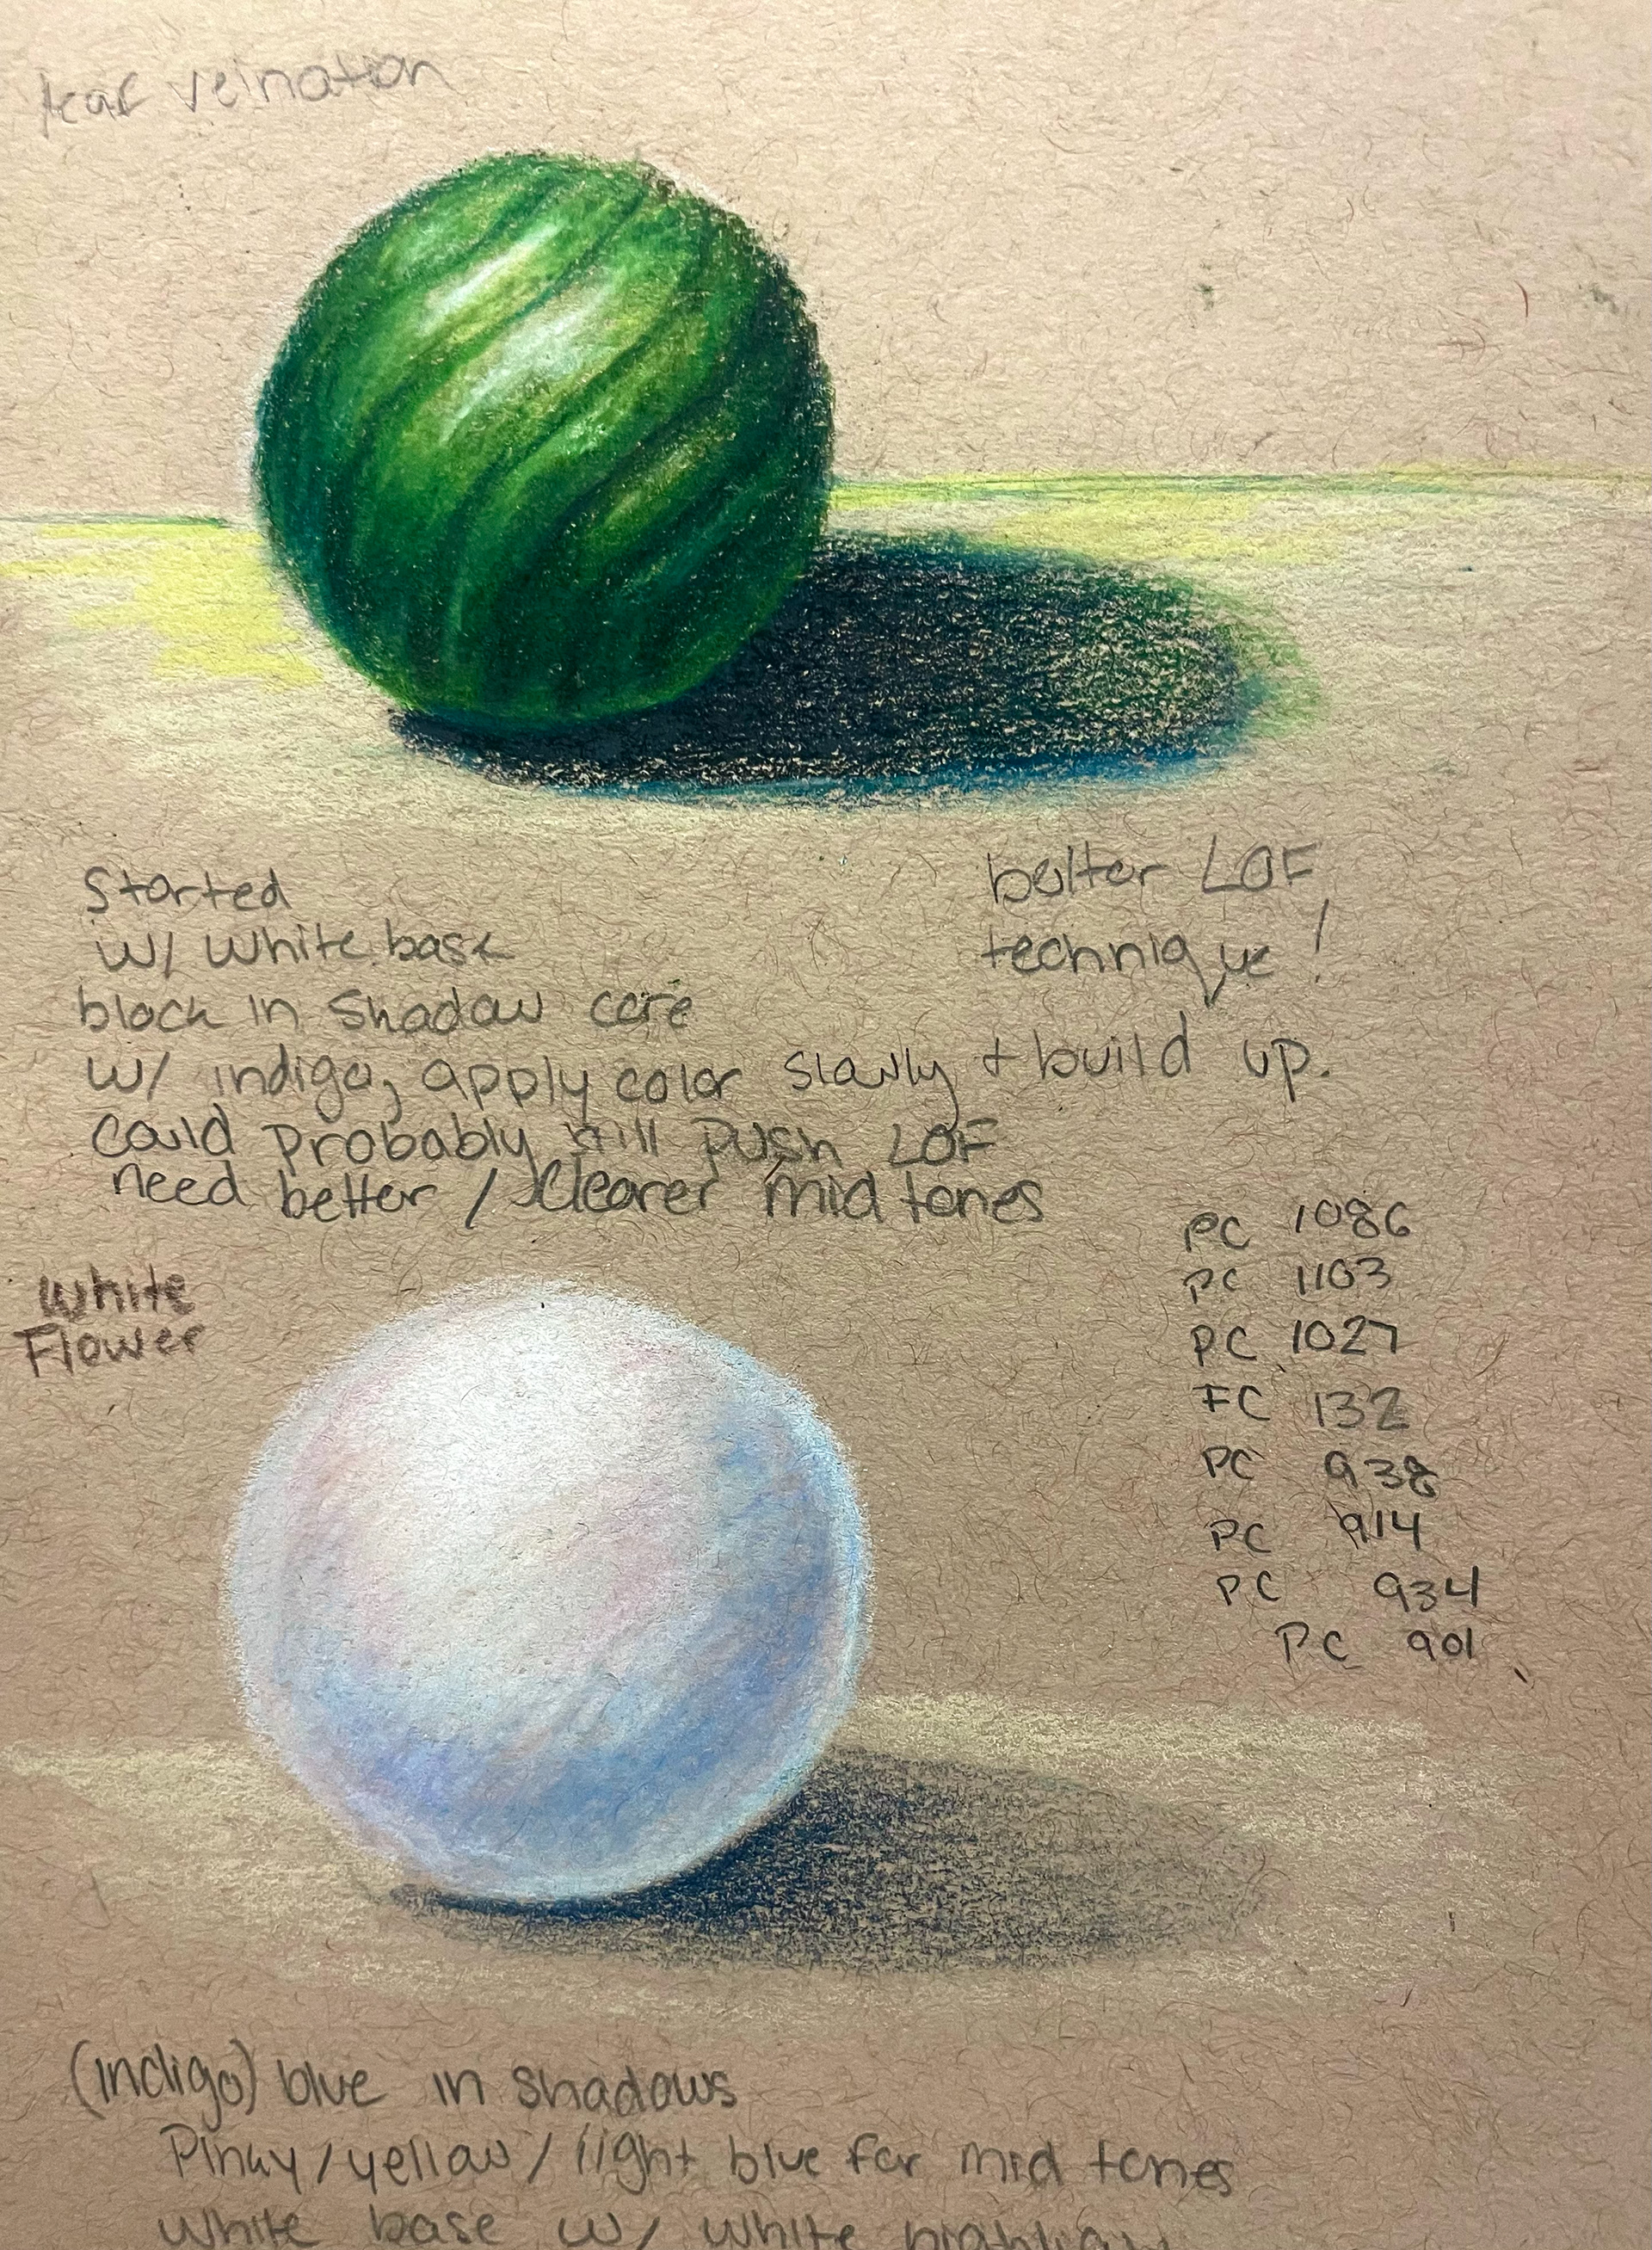 leaf veination
Started
w/ white base
block in shadow core
w/ indigo, apply color slowly + build up.
could probably still push LOF
need better / clearer mid tones
better LOF
technique!
PC 1086
PC 1103
PC 1027
FC 132
PC 938
PC 914
PC 934
PC 901
White
Flower
(indigo) blue in shadows
Pinky/yellow/light blue for mid tones
white base w/ white